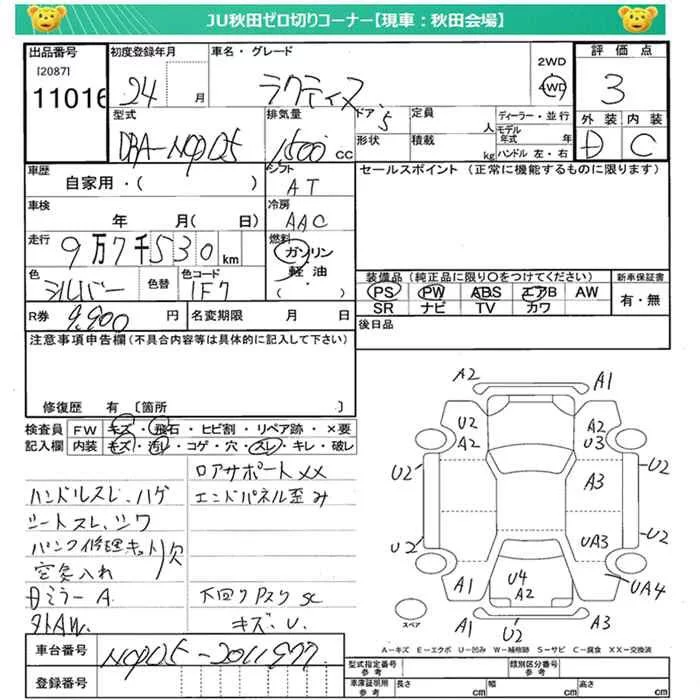 JU秋田ゼロ切りコーナー【現車：秋田会場】
出品番号 初度登録年月 車名・グレード 2WD 評価点
[2087] 11016 24 月 ラクティス 4WD 3
型式 排気量 ドア 定員 ディーラー・並行 外装 内装
DBA-NCP105 1500 CC 5 人 モデル年式 年 D C
形状 積載 kg ハンドル 左・右
車歴 シフト セールスポイント (正常に機能するものに限ります)
自家用・( ) AT
車検 冷房
年 月( 日) AAC
走行 燃料
9万7千530 km ガソリン
色 色替 色コード 軽油
シルバー 1F7 ( )
装備品(純正品に限り○をつけてください) 新車保証書
PS PW ABS エアB AW 有・無
SR ナビ TV カワ
R券 9,900 円 名変期限 月 日 後日品
注意事項申告欄(不具合内容等は具体的に記入して下さい)
修復歴 有〔箇所 〕
検査員 FW キズ・飛石・ヒビ割・リペア跡・×要
記入欄 内装 キズ・汚レ・コゲ・穴・スレ・キレ・破レ
ロアサポートXX
ハンドルスレ、ハゲ エンドパネル歪み
シートスレ、シワ
パンク修理キット欠
空気入れ
Dミラー A 下回りPスリ SC
外AW. キズ、U.
A2 A1
U2 A2
A2 U3
U2 A3 U2
U2 UA3 U2
A1 U4 UA4
A2
A1 U2 A1
スペア
A－キズ E－エクボ U－凹み W－補修跡 S－サビ C－腐食 XX－交換済
車台番号 NCP105-2011977
登録番号
型式指定番号 参考 類別区分番号 参考
車庫証明用 参考 長さ cm 幅 cm 高さ cm